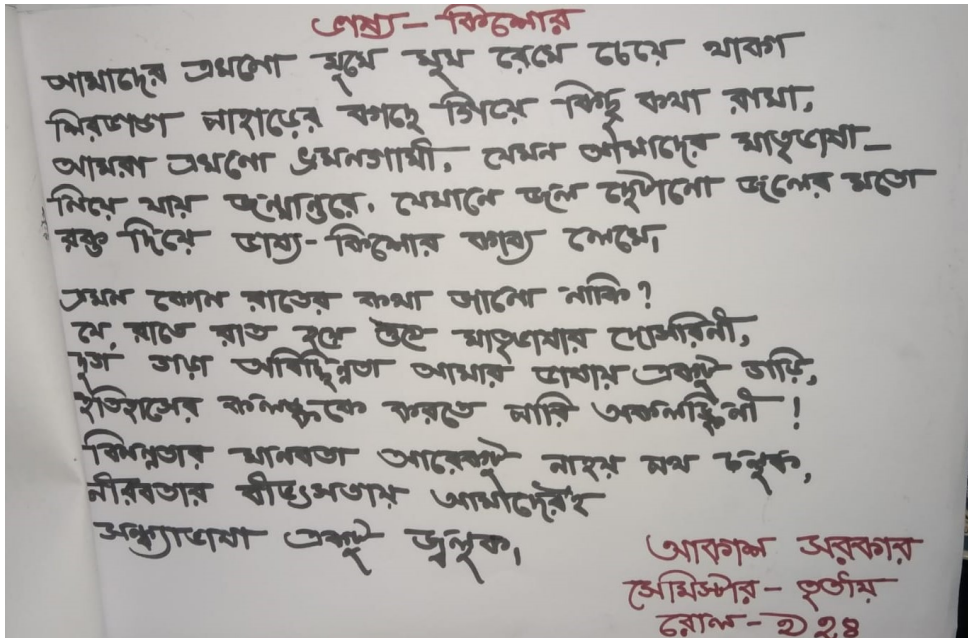 ভাষ্য-কিশোর
আমাদের এখনো মুখে মুখ রেখে চেয়ে থাকা
শিরডাডা পাহাড়ের কাছে গিয়ে কিছু কথা রাখা,
আমরা এখনো ভ্রমনগামী, যেমন আমাদের মাতৃভাষা—
নিয়ে যায় জন্মান্তরে, যেখানে জল ছেটানো জলের মতো
রক্ত দিয়ে ভাষ্য-কিশোর কাব্য লেখে,
এমন কোন রাতের কথা জানো নাকি?
যে, রাতে রাত হবে শুধু মাতৃভাষার
তারা অবিচ্ছিন্নতা আমার ভাষায় একটু
ইতিহাসের কলঙ্ককে করতে পারি অকলঙ্কিনী!
বিষন্নতার মানবতা আরেকটু নাহয় পথ চলুক,
নীরবতার বীভৎসতায় আমাদেরই
সন্ধ্যাভাষা একটু জ্বলুক,
আকাশ সরকার
সেমিস্টার- তৃতীয়
রোল- ২২৪